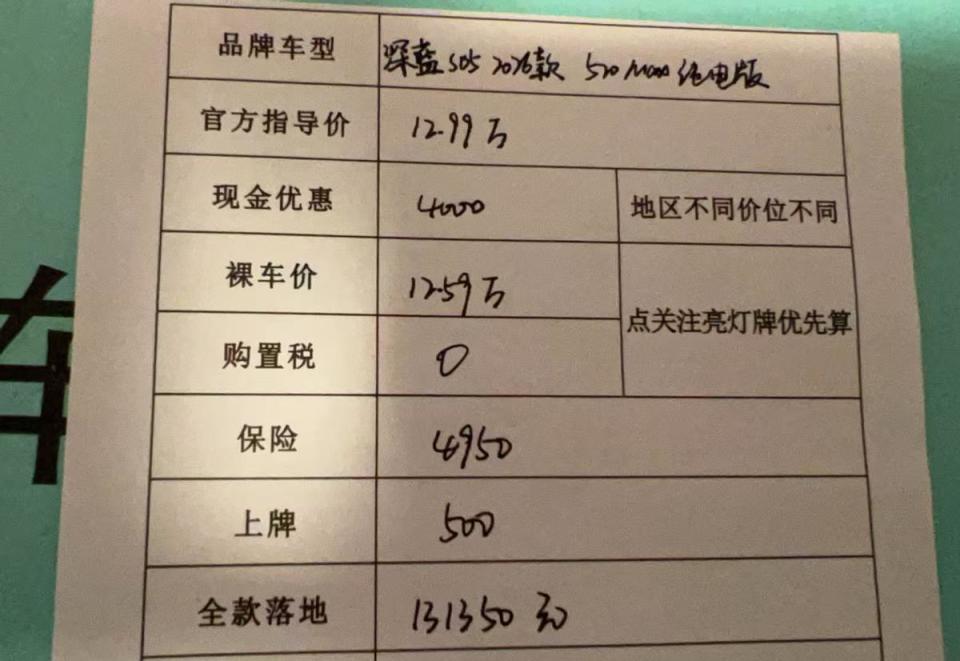 品牌车型 深蓝S05 2026款 520Max纯电版
官方指导价 12.99万
现金优惠 4000 地区不同价位不同
裸车价 12.59万
点关注亮灯牌优先算
购置税 0
保险 4950
上牌 500
全款落地 131350元
车